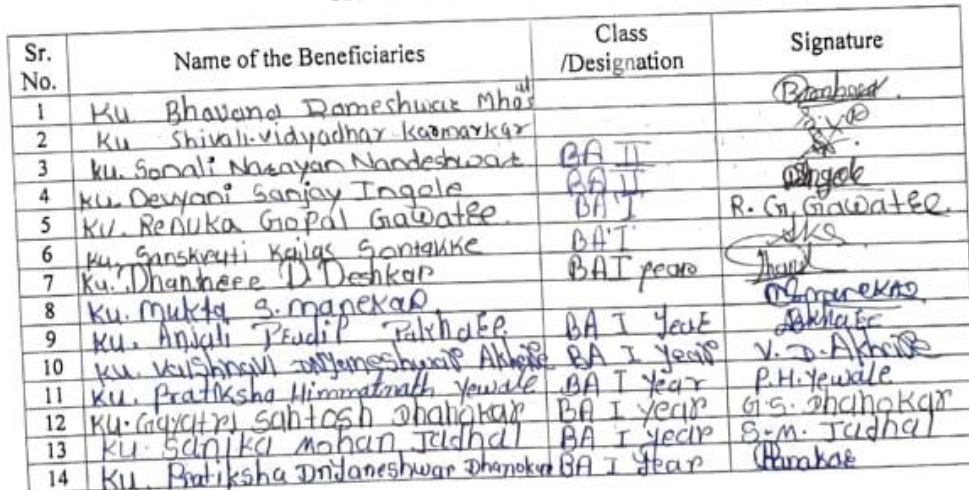 Sr. No. Name of the Beneficiaries Class /Designation Signature
1 Ku Bhavana Rameshwar
2 Ku Shivali vidyadhar Karmarkar
3 Ku. Sonali Narayan Nandeshwar BA II
4 Ku. Devyani Sanjay Ingole BA II Ingole
5 Ku. Renuka Gopal Gawatre. BA I R. G. Gawatre.
6 Ku. Sanskruti Kailas Sontakke BA I SKS
7 Ku. Dhanshree D Deshkar BA I year
8 Ku. Mukta S. Manekar
9 Ku. Anjali Pradip BA I Year
10 Ku. Vaishnavi Dnyaneshwar Akhare BA I Year V. D. Akhare
11 Ku. Pratiksha Himmatnath Yewale BA I Year P.H. Yewale
12 Ku. Gayatri Santosh Dhanokar BA I year G.S. Dhanokar
13 Ku. Sanika Mohan Jadhal BA I year S.M. Jadhal
14 Ku. Pratiksha Dnyaneshwar Dhanokar BA I Year